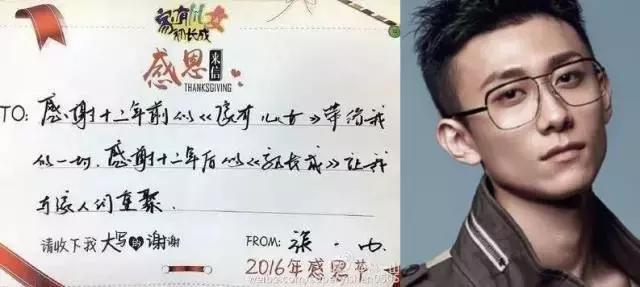 家有儿女
初长成
感恩来信
THANKSGIVING
TO: 感谢十二年前的《家有儿女》带给我
的一切,感谢十二年后的《初长成》让我
与家人们重聚.
请收下我大写的谢谢
FROM: 张一山
2016年感恩